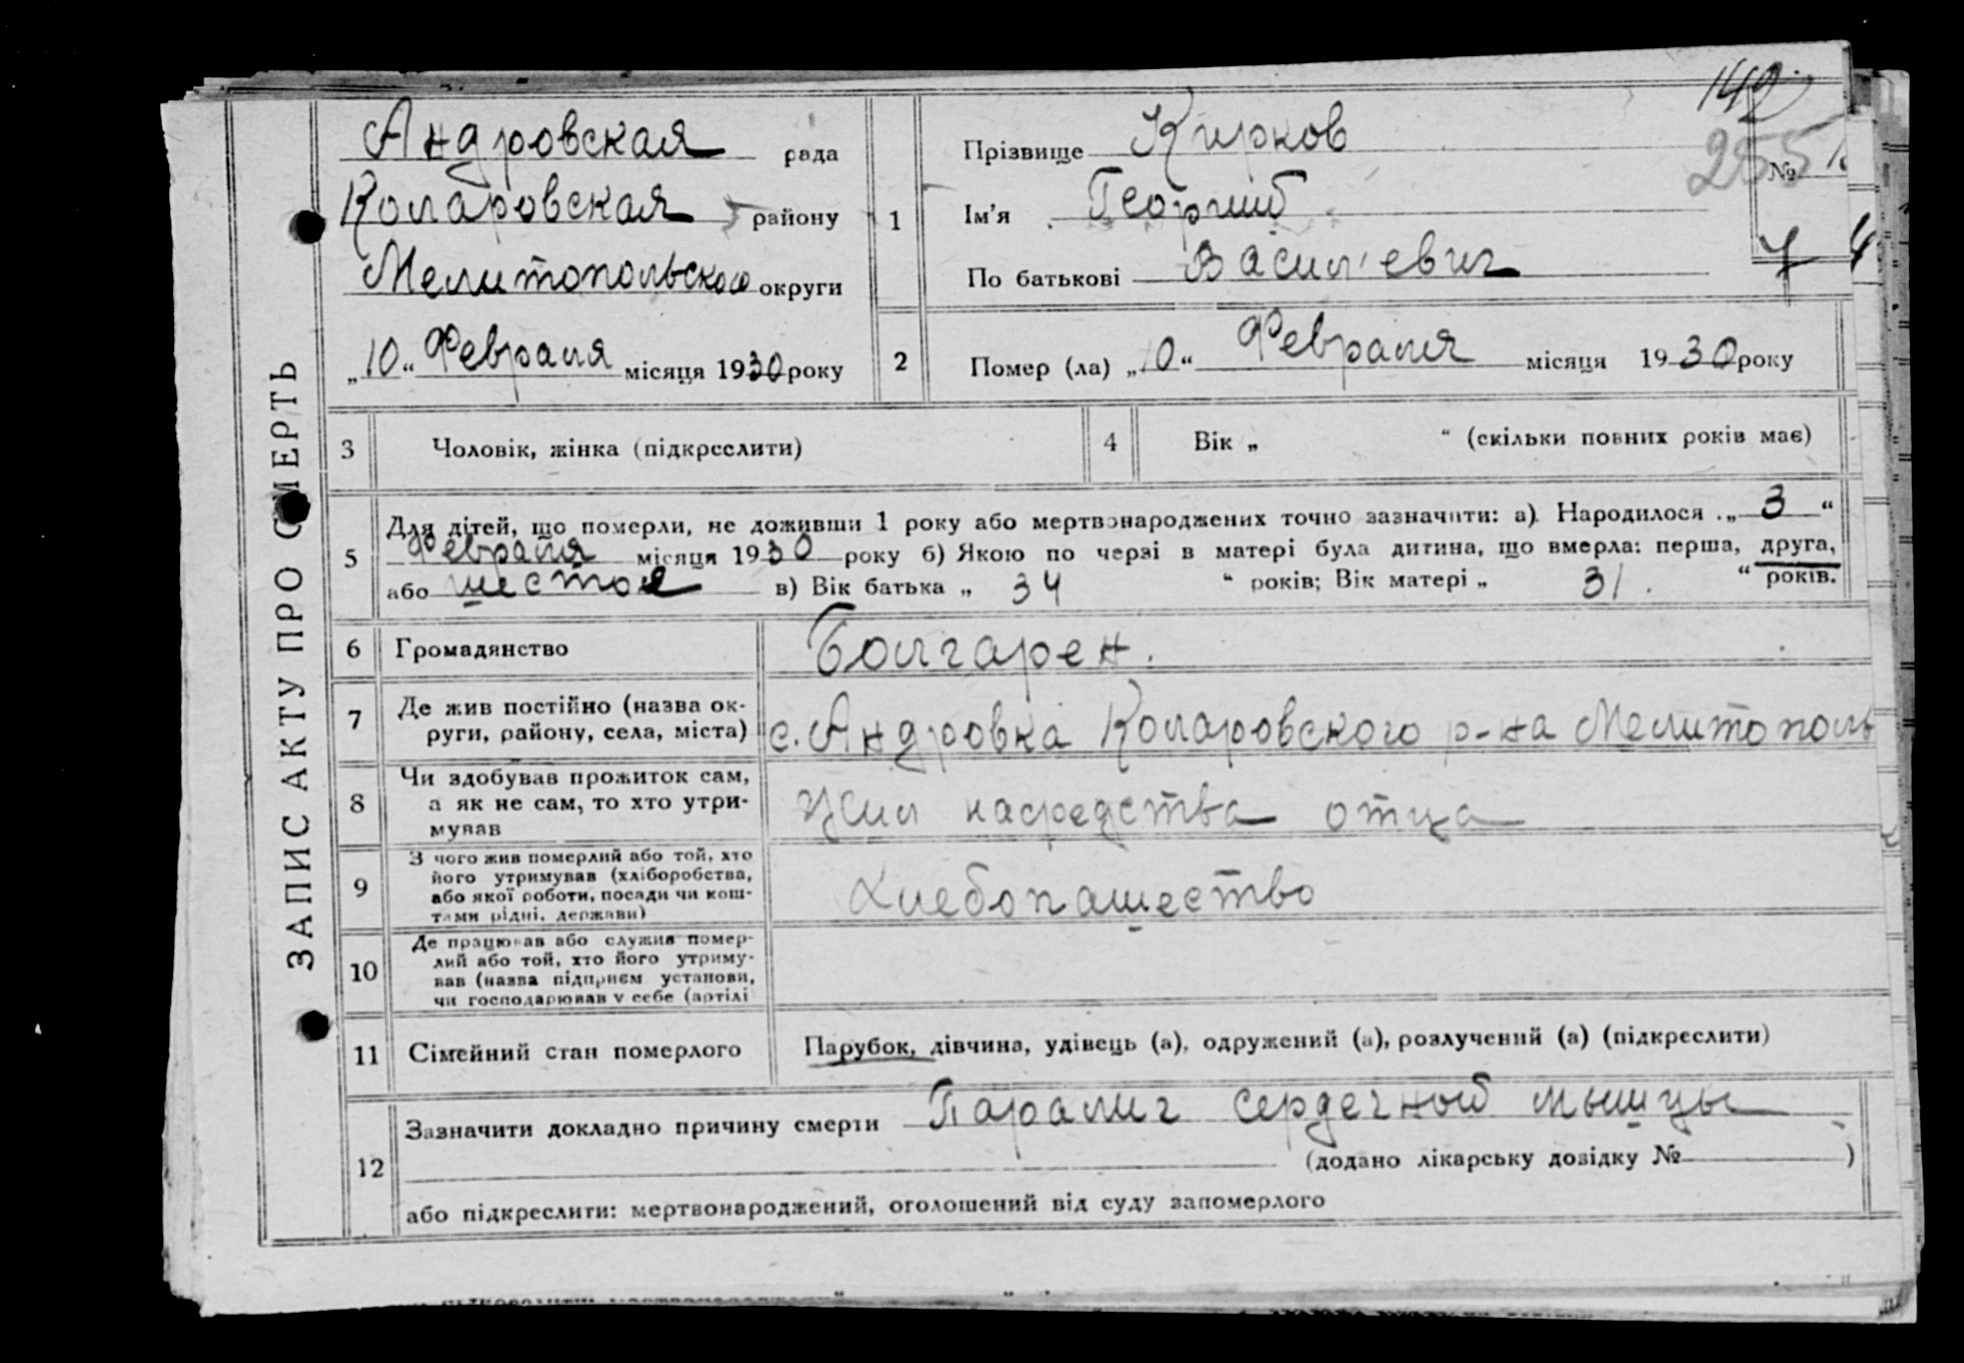 ЗАПИС АКТУ ПРО СМЕРТЬ
142
№ 255
7 4
Андровская рада
Коларовская району
Мелитопольского округи
„10“ Февраля місяця 1930 року
1
Прізвище Кирков
Ім'я Георгий
По батькові Васильевич
2
Помер (ла) „10“ Февраля місяця 1930 року
3 Чоловік, жінка (підкреслити)
4 Вік „ “ (скільки повних років має)
5
Для дітей, що померли, не доживши 1 року або мертвонароджених точно зазначити: а) Народилося „3“
Февраля місяця 1930 року б) Якою по черзі в матері була дитина, що вмерла: перша, друга,
або шестой в) Вік батька „ 34 “ років; Вік матері „ 31. “ років.
6 Громадянство Болгарен.
7 Де жив постійно (назва ок-
руги, району, села, міста) с. Андровка Коларовского р-на Мелитополь
8 Чи здобував прожиток сам,
а як не сам, то хто утри-
мував Жил на средства отца
9 З чого жив померлий або той, хто
його утримував (хліборобства,
або якої роботи, посади чи кош-
тами рідні, держави) Хлебопашество
10 Де працював або служив помер-
лий або той, хто його утриму-
вав (назва підприєм установи,
чи господарював у себе (артілі
11 Сімейний стан померлого Парубок, дівчина, удівець (а), одружений (а), розлучений (а) (підкреслити)
12 Зазначити докладно причину смерти Паралич сердечной мышцы
(додано лікарську довідку № )
або підкреслити: мертвонароджений, оголошений від суду запомерлого